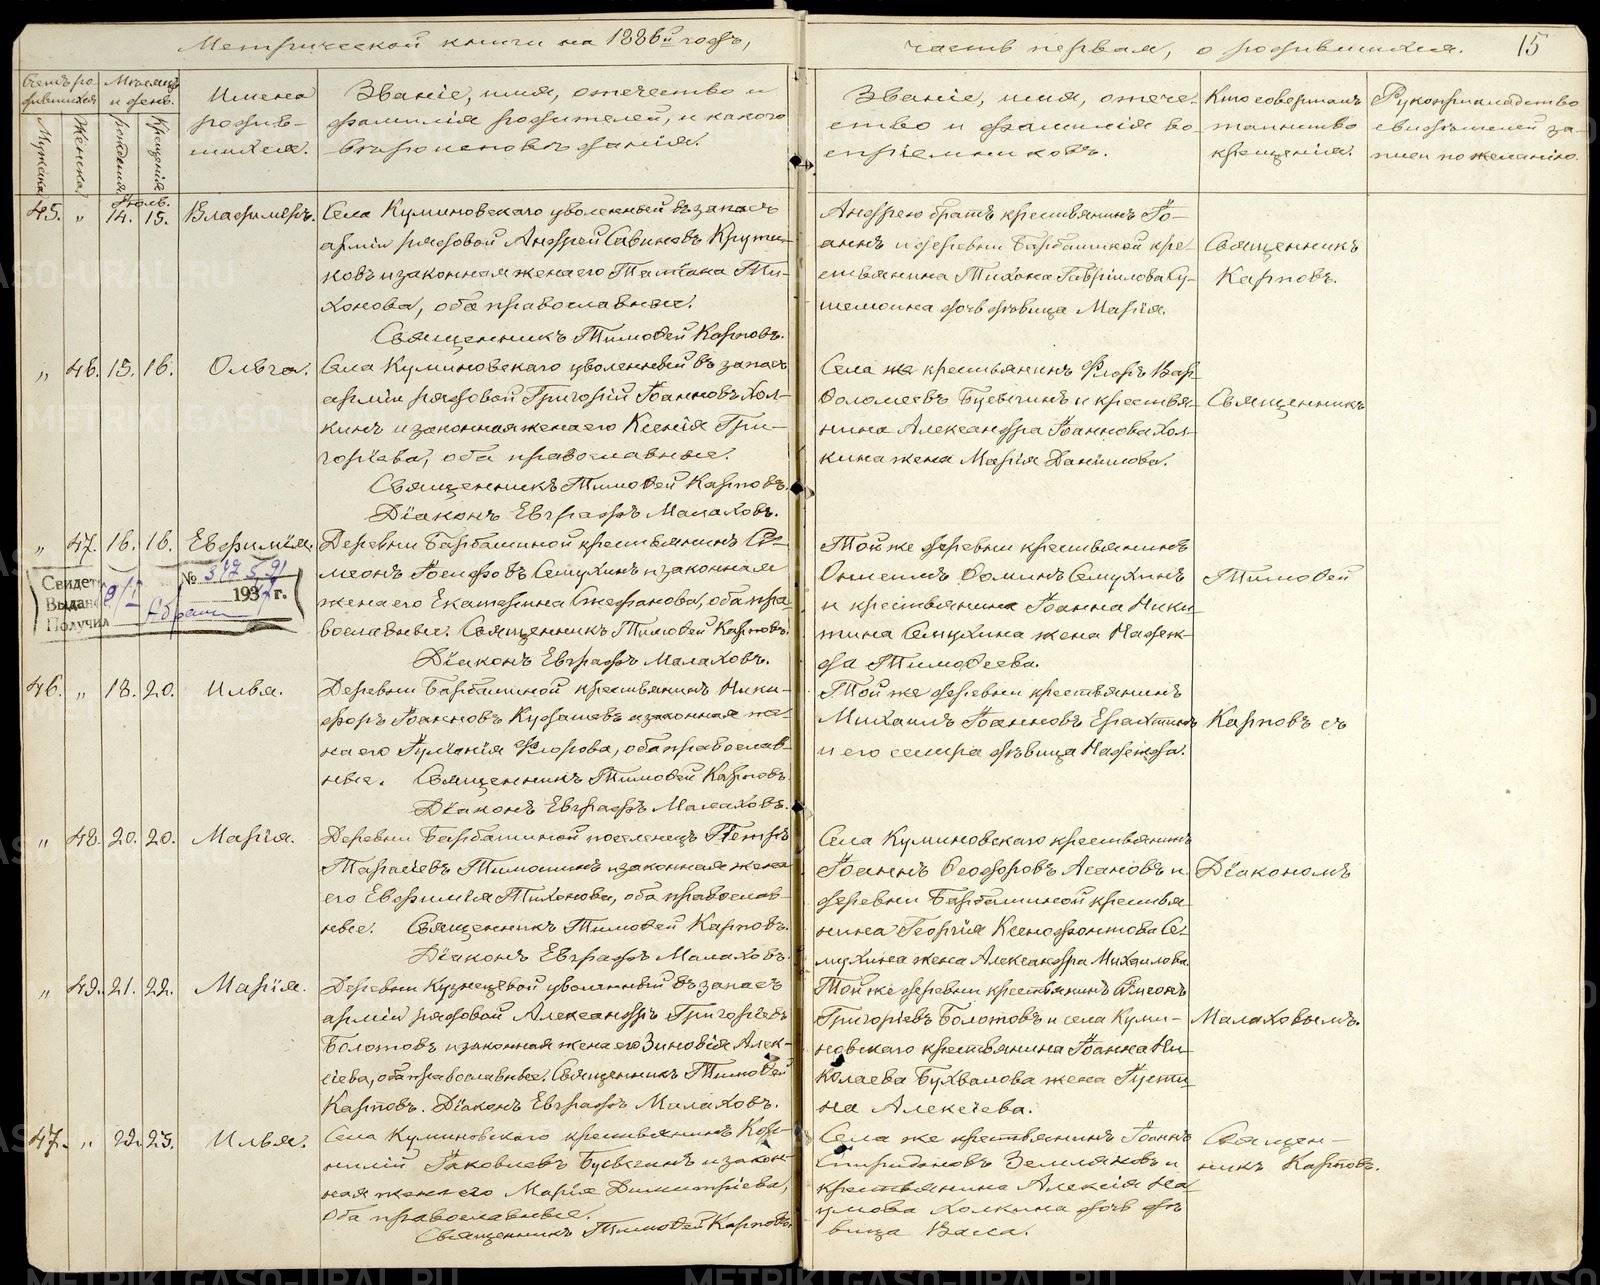 Метрической книги на 1886й годъ,
часть первая, о родившихся.
15
Счетъ родившихся
Мѣсяцъ и день.
Мужска
Женска
рожденія
Крещенія
Имена родившихся.
Званіе, имя, отечество и
фамилія родителей, и какого
вѣроисповѣданія.
Званіе, имя, отече-
ство и фамилія во
спріемниковъ.
Кто совершалъ
таинство
крещенія.
Рукоприкладство
свидѣтелей за-
писи по желанію.
Іюль.
45. " 14. 15. Владиміръ.
Села Куминовскаго уволенный въ запасъ
арміи рядовой Андрей Савиновъ Крути-
ковъ и законная жена его Татіана Ти-
хонова, оба православные.
Священникъ Тимоѳей Карповъ.
Андрею братъ крестьянинъ Іо-
аннъ и деревни Барбашиной кре-
стьянина Тихона Гавріилова
дочь дѣвица Марія.
Священникъ
Карповъ.
" 46. 15. 16. Ольга.
Села Куминовскаго уволенный въ запасъ
арміи рядовой Григорій Іоанновъ Хол-
кинъ и законная жена его Ксенія Гри-
горіева, оба православные.
Священникъ Тимоѳей Карповъ.
Діаконъ Евграфъ Малаховъ.
Села же крестьянинъ Флоръ Вар-
ѳоломеевъ и крестья-
нина Александра Іоаннова Хол-
кина жена Марія Даніилова.
Священникъ
" 47. 16. 16. Евфимія.
Деревни Барбашиной крестьянинъ Си-
меонъ Іосифовъ Семухинъ и законная
жена его Екатерина Стефанова, оба пра-
вославные. Священникъ Тимоѳей Карповъ.
Діаконъ Евграфъ Малаховъ.
Той же деревни крестьянинъ
Онисимъ Ѳоминъ Семухинъ
и крестьянина Іоанна Ники
тина Семухина жена Надеж-
да Тимоѳеева.
Тимоѳей
Свидет
Выдано
Получил
№
193 г.
46. " 18. 20. Илья.
Деревни Барбашиной крестьянинъ Ники-
форъ Іоанновъ Кудашевъ и законная же-
на его Іуліанія Флорова, оба православ-
ные. Священникъ Тимоѳей Карповъ.
Діаконъ Евграфъ Малаховъ.
Той же деревни крестьянинъ
Михаилъ Іоанновъ
и его сестра дѣвица Надежда.
Карповъ съ
" 48. 20. 20. Марія.
Деревни Барбашиной поселенецъ Петръ
Тарасіевъ Тимошинъ и законная жена
его Евфимія Тихонова, оба православ-
ные. Священникъ Тимоѳей Карповъ.
Діаконъ Евграфъ Малаховъ.
Села Куминовскаго крестьянинъ
Іоаннъ Ѳеодоровъ Асановъ и
деревни Барбашиной крестья
нина Георгія Ксенофонтова Се-
мухина жена Александра Михаилова
Діакономъ
" 49. 21. 22. Марія.
Деревни Кузнецовой уволенный въ запасъ
арміи рядовой Александръ Григоріевъ
Болотовъ и законная жена его Зиновія Алек-
сіева, оба православные. Священникъ Тимоѳей
Карповъ. Діаконъ Евграфъ Малаховъ.
Той же деревни крестьянинъ
Григоріевъ Болотовъ и села Куми-
новскаго крестьянина Іоанна Ни-
колаева Бухвалова жена Іусти
на Алексіева.
Малаховымъ.
47. " 22. 23. Илья.
Села Куминовскаго крестьянинъ Кор-
нилій Іаковлевъ и закон-
ная жена его Марія Димитріева,
оба православные.
Священникъ Тимоѳей Карповъ.
Села же крестьянинъ Іоаннъ
Спиридоновъ Земляновъ и
крестьянина Алексія На
умова Холкина дочь дѣ
вица Васса.
Священ-
никъ Карповъ.